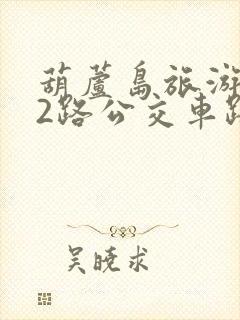 葫蘆島旅游
2路公交車路
吴曉求